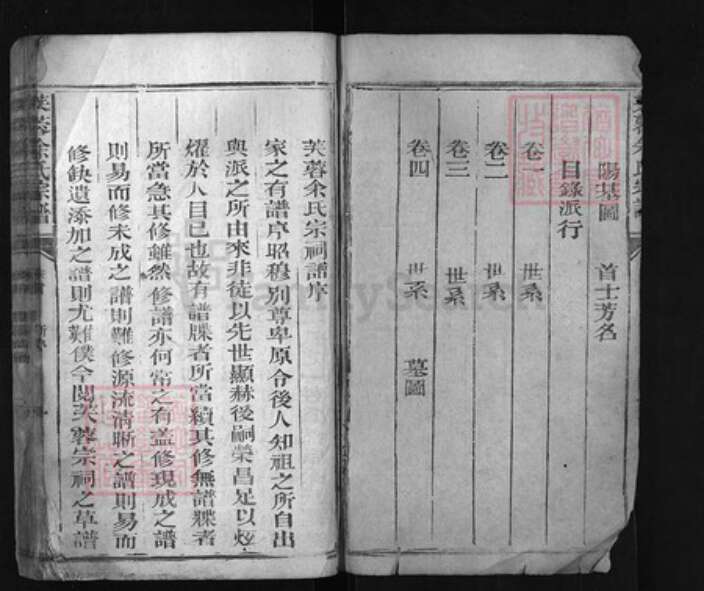 陽基圖 首士芳名
目錄派行
卷一 世系
卷二 世系
卷三 世系
卷四 世系 墓圖
芙蓉余氏宗祠譜序
家之有譜序昭穆別尊卑原令後人知祖之所自出
與派之所由來非徒以先世顯赫後嗣榮昌足以炫
燿於人目已也故有譜牒者所當續其修無譜牒者
所當急其修雖然修譜亦何常之有蓋修現成之譜
則易而修未成之譜則難修源流清晰之譜則易而
修缺遺添加之譜則尤難僕今閱芙蓉宗祠之草譜
芙蓉余氏宗譜
FamilySearch